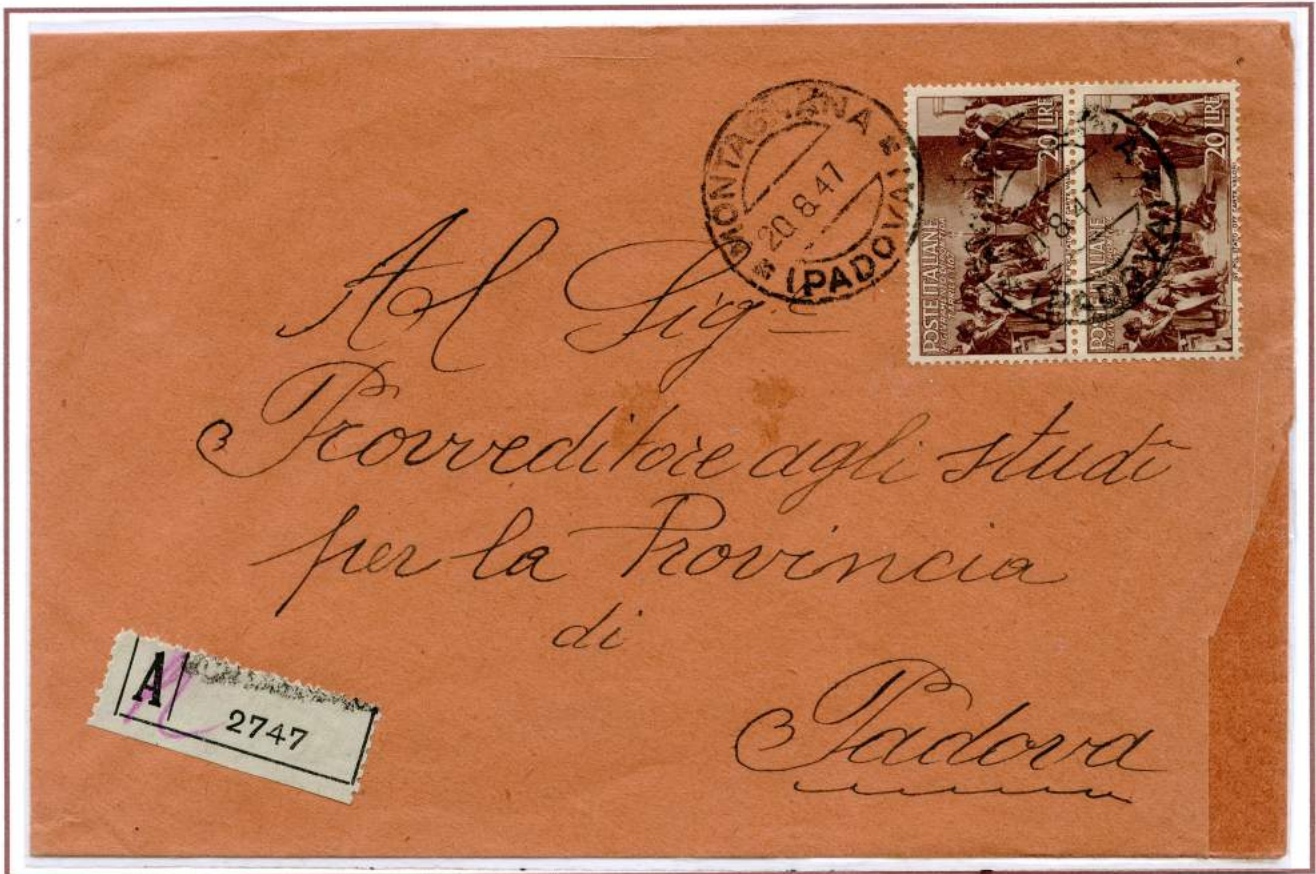 MONTAGNANA
20.8.47
(PADOVA)
20 LIRE
20 LIRE
POSTE ITALIANE
POSTE ITALIANE
8.47
(PADOVA)
Al Sig.e
Provveditore agli studi
per la Provincia
di
Padova
A R
2747